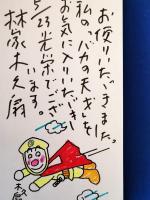 お便りいただきました。
私のバカの天才を
お気に入りいただき
5/23光栄でござ
います。
林家木久扇
木久扇